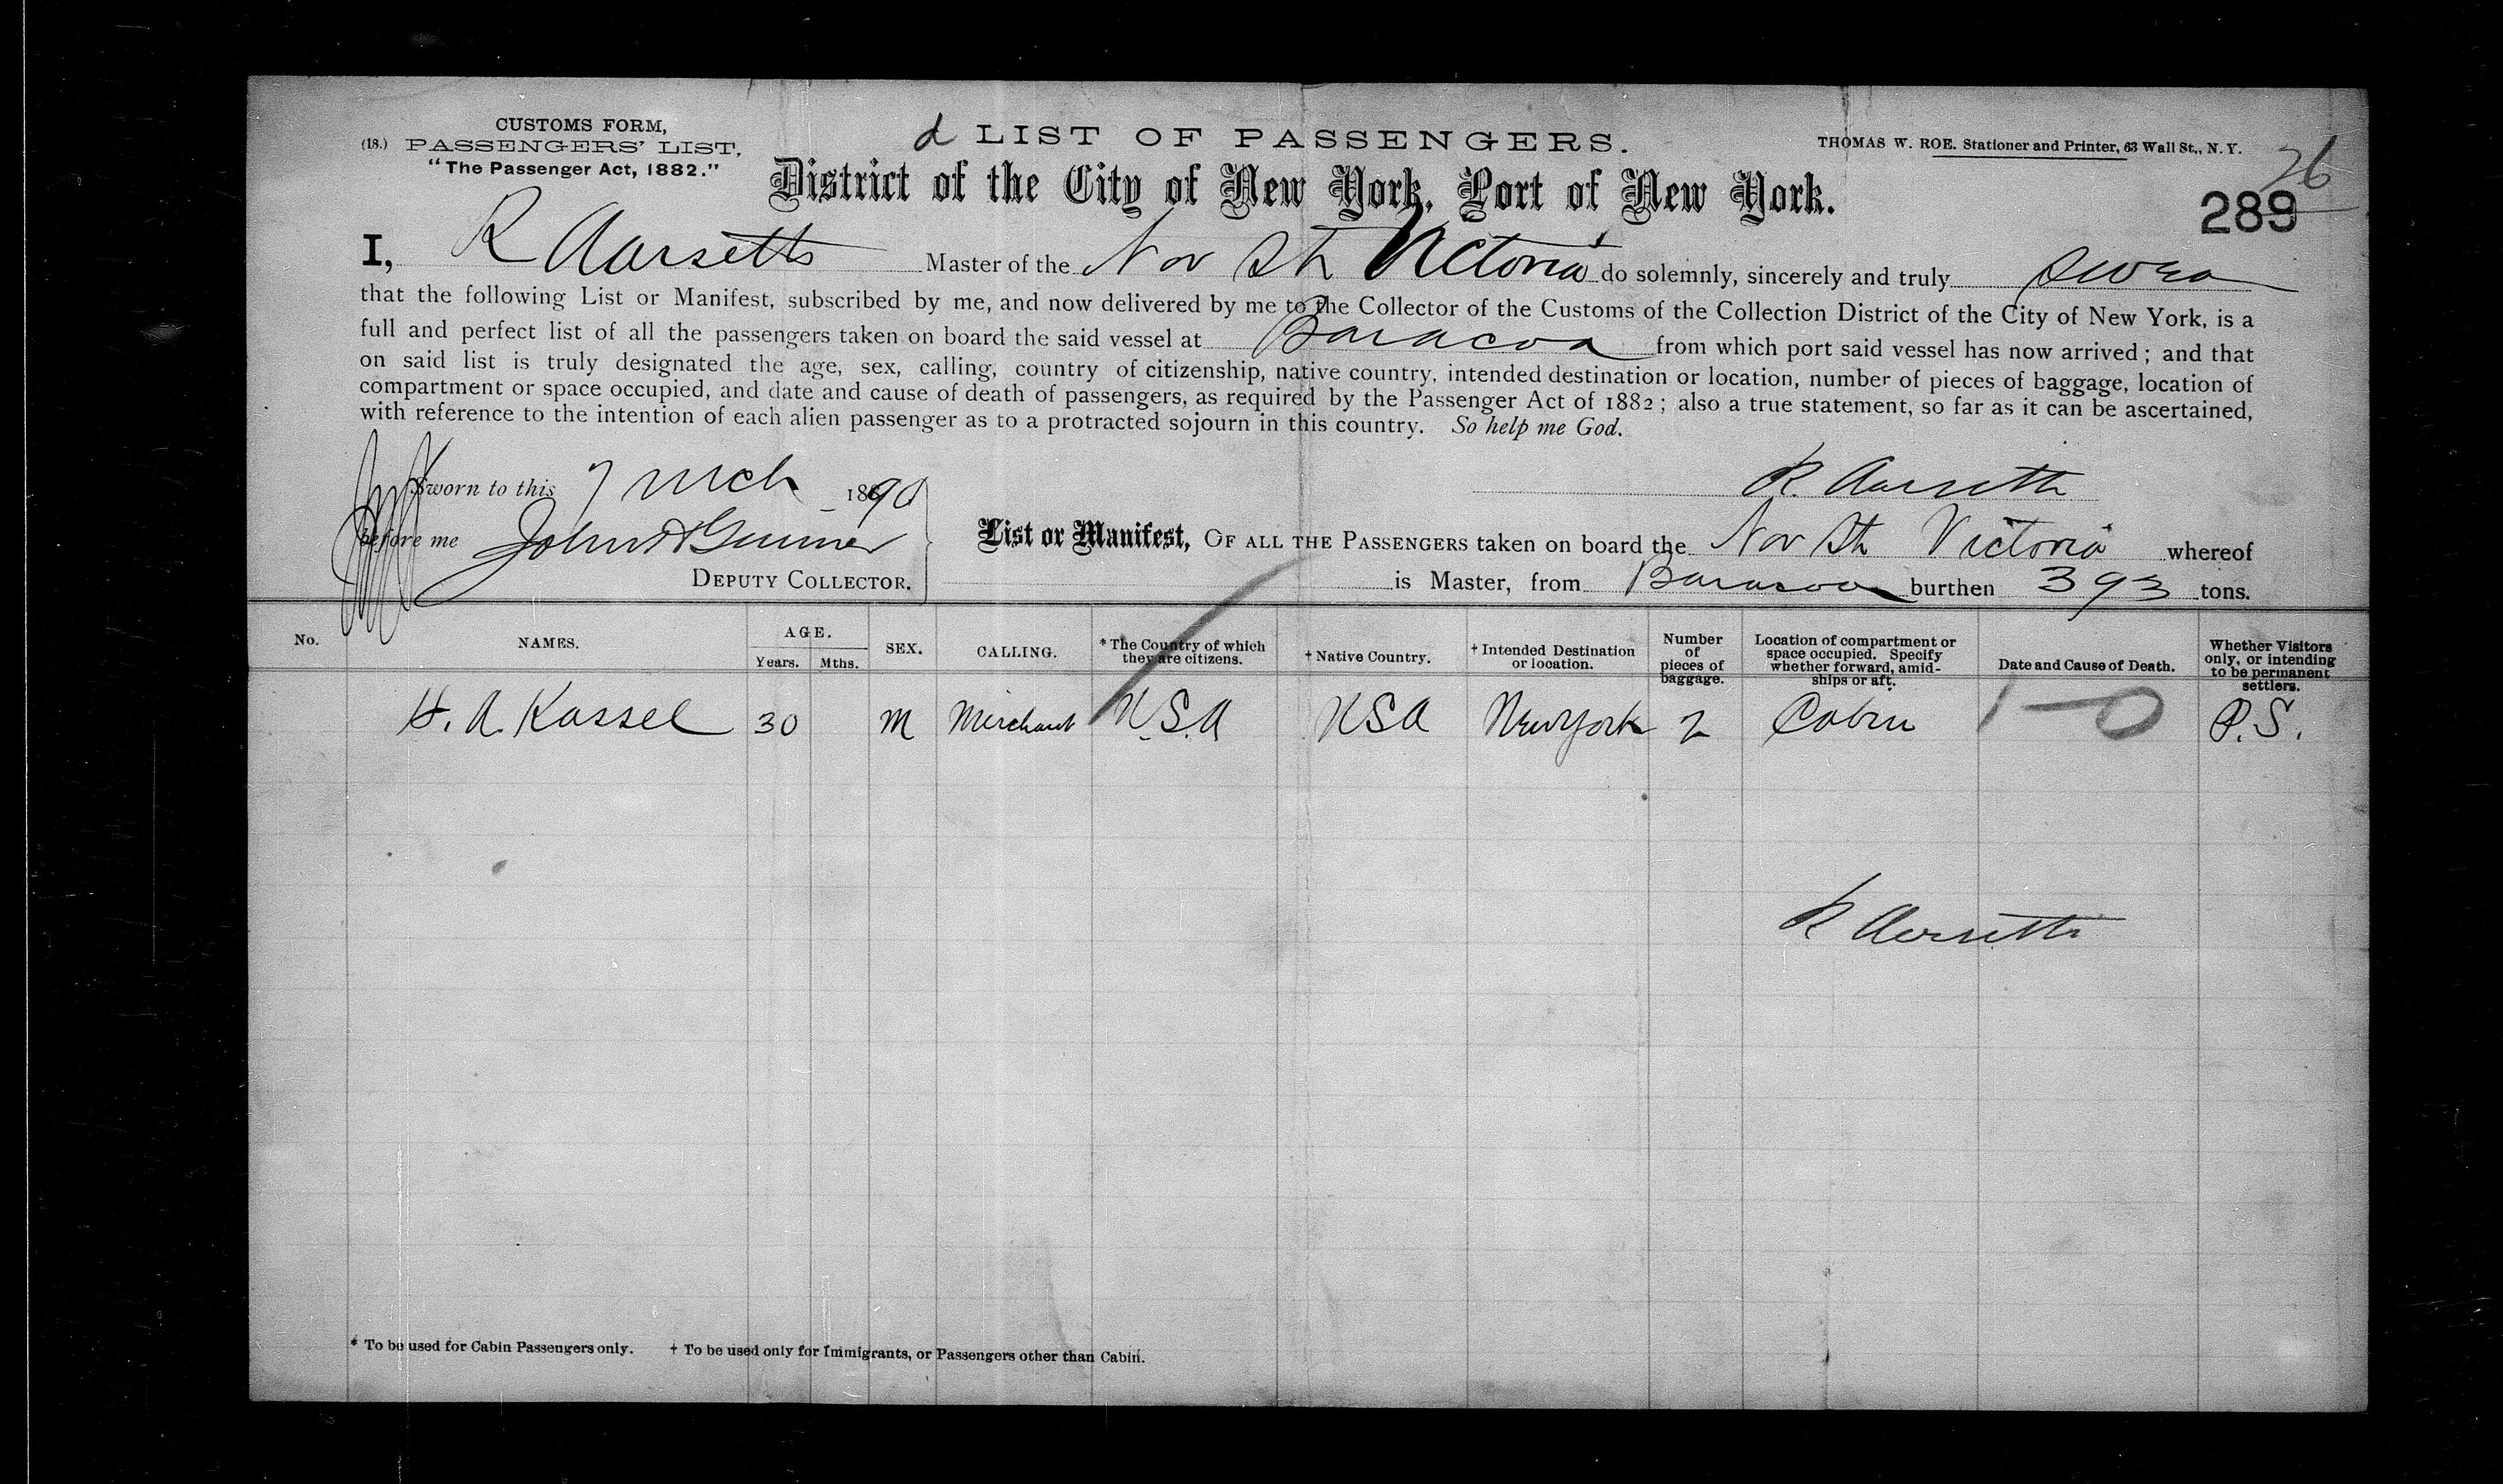 CUSTOMS FORM,
(18.) PASSENGERS' LIST,
"The Passenger Act, 1882."
d LIST OF PASSENGERS.
THOMAS W. ROE. Stationer and Printer, 63 Wall St., N. Y.
District of the City of New York, Port of New York.
26
289
I, R Aarseth Master of the Nor Str Victoria do solemnly, sincerely and truly swear
that the following List or Manifest, subscribed by me, and now delivered by me to the Collector of the Customs of the Collection District of the City of New York, is a
full and perfect list of all the passengers taken on board the said vessel at Baracoa from which port said vessel has now arrived; and that
on said list is truly designated the age, sex, calling, country of citizenship, native country, intended destination or location, number of pieces of baggage, location of
compartment or space occupied, and date and cause of death of passengers, as required by the Passenger Act of 1882; also a true statement, so far as it can be ascertained,
with reference to the intention of each alien passenger as to a protracted sojourn in this country. So help me God.
Sworn to this 7 Mch 1890
R. Aarseth
before me John
DEPUTY COLLECTOR.
List or Manifest, OF ALL THE PASSENGERS taken on board the Nor Str Victoria whereof
is Master, from Baracoa burthen 393 tons.
No. NAMES. AGE. Years. Mths. SEX. CALLING. * The Country of which they are citizens. † Native Country. † Intended Destination or location. Number of pieces of baggage. Location of compartment or space occupied. Specify whether forward, amidships or aft. Date and Cause of Death. Whether Visitors only, or intending to be permanent settlers.
H. A. Kassel 30 M Merchant U.S.A USA New York 2 Cabin 1-0 P.S.
R Aarseth
* To be used for Cabin Passengers only. † To be used only for Immigrants, or Passengers other than Cabin.